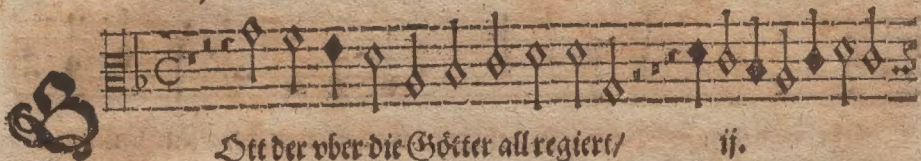 GOtt der vber die Götter all regiert/ ij.